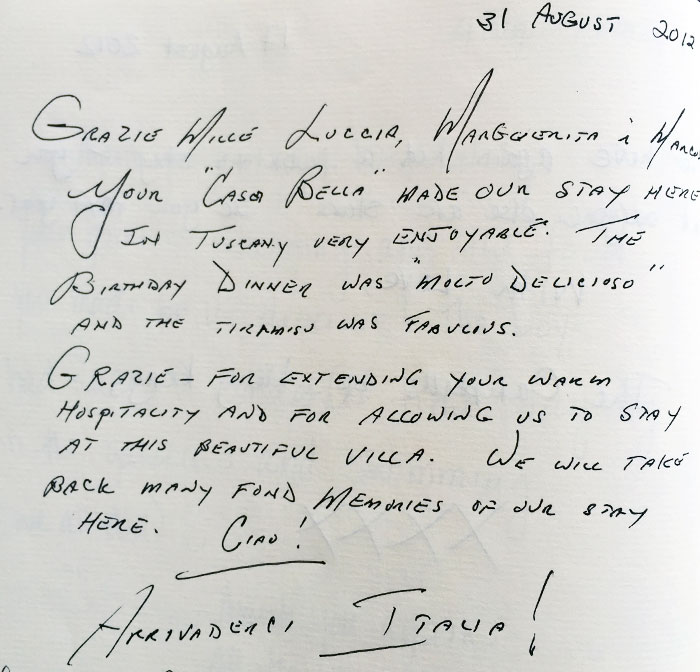 31 AUGUST 2012
GRAZIE MILLE LUCCIA, MARGUERITA i
YOUR "CASA BELLA" MADE OUR STAY HERE
IN TUSCANY VERY ENJOYABLE. THE
BIRTHDAY DINNER WAS "MOLTO DELICIOSO"
AND THE TIRAMISU WAS FABULOUS.
GRAZIE - FOR EXTENDING YOUR WARM
HOSPITALITY AND FOR ALLOWING US TO STAY
AT THIS BEAUTIFUL VILLA. WE WILL TAKE
BACK MANY FOND MEMORIES OF OUR STAY
HERE. CIAO!
ARRIVADERCI ITALIA!